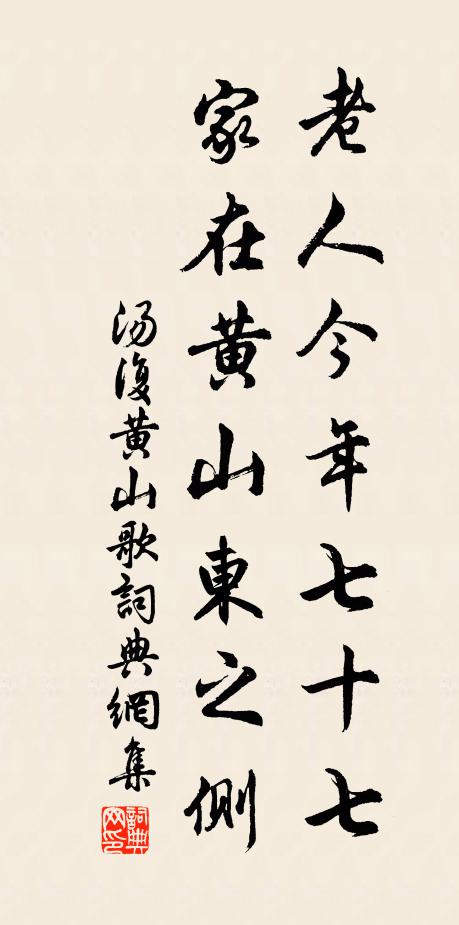 老人今年七十七
家在黃山東之側
汤復黄山歌詞典網集
詞典网印